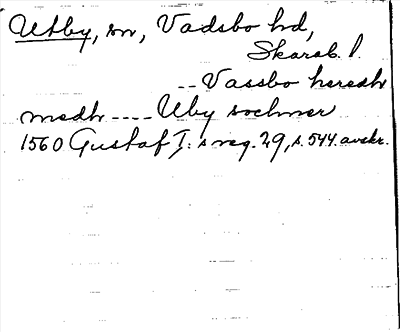 Utby, sn, Vadsbo hd,
Skarab. l.
-- Vassbo heredh
medh ---- Uby sochner
1560 Gustaf I:s reg. 29, s. 544. avskr.